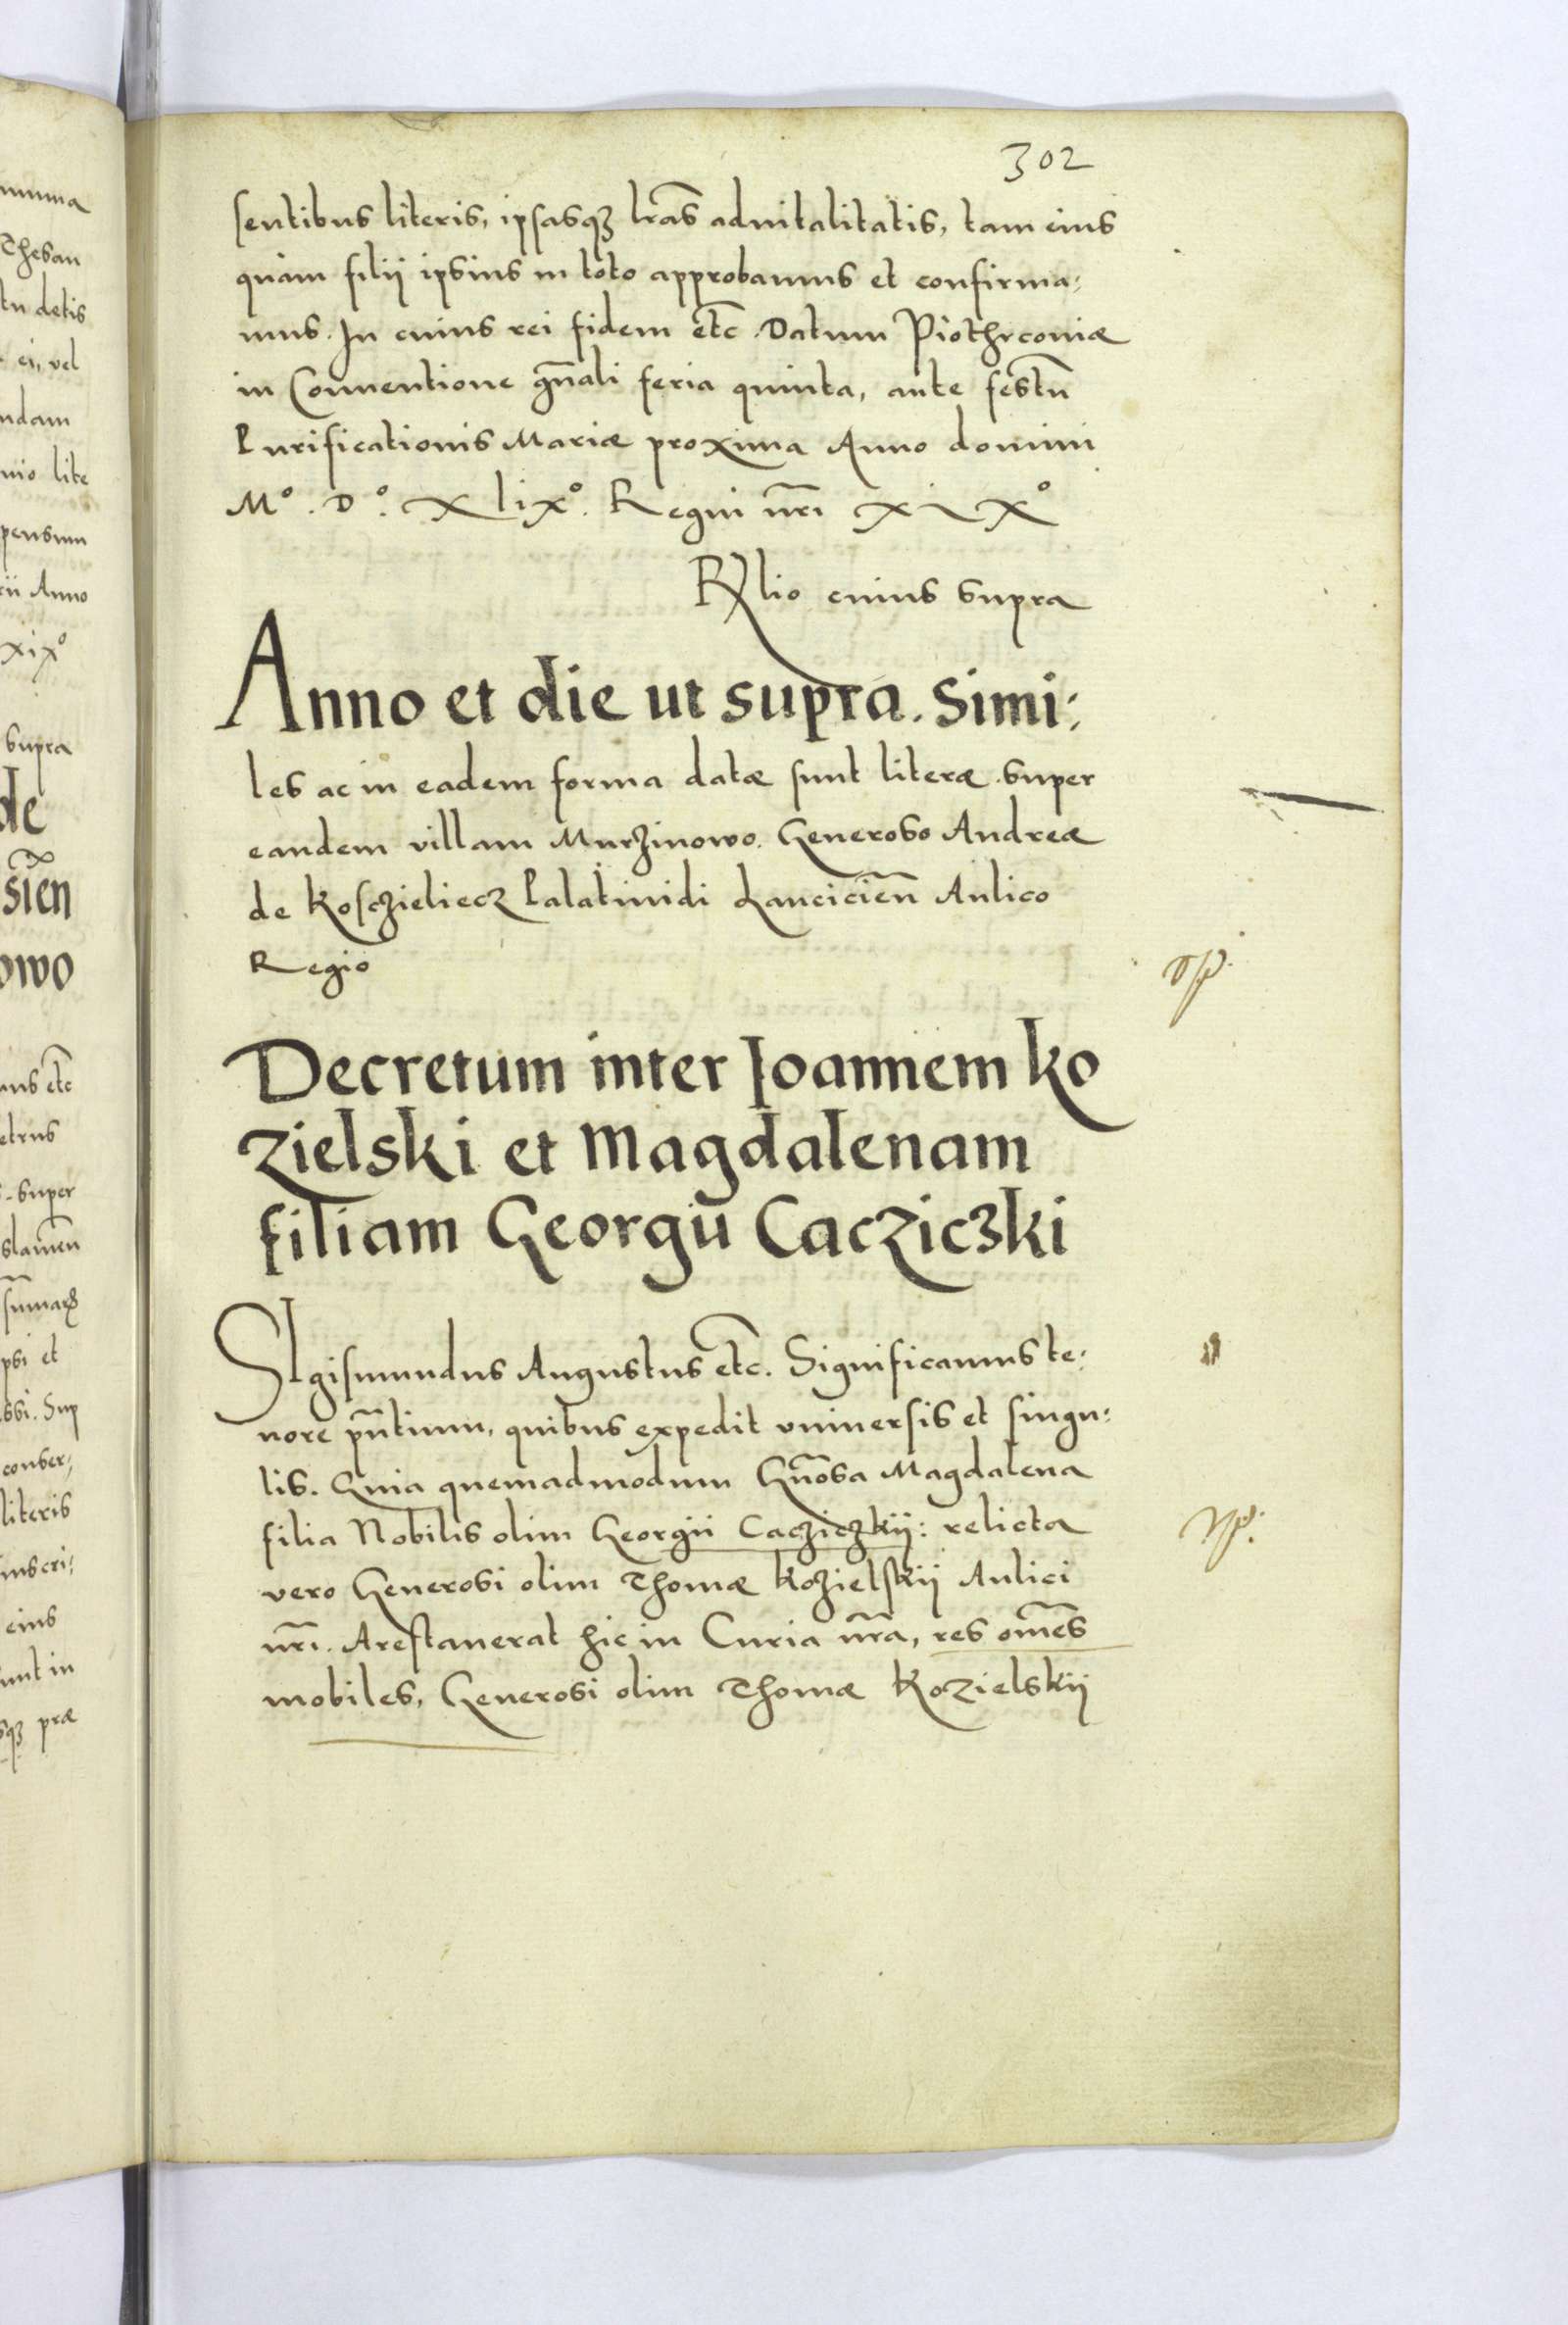 302
sentibus literis, ipsasqʒ lrãs aduitalitatis, tam eius
quam filii ipsius in toto approbamus et confirma:
mus. In cuius rei fidem etc̃. Datum Piothrconiæ
in Conuentione gñali feria quinta, ante festũ
Purificationis Mariæ proxima Anno domini
Mº. Dº. Xlixº. Regni nr̃i xixº
Rᶜlio cuius supra
Anno et die ut supra. Simi:
les ac in eadem forma datæ sunt literæ super
eandem villam Murzinowo. Generoso Andreæ
de Kosczieliecz Palatinidi Lanciciẽn Aulico
Regio
Decretum inter Ioannem Ko
zielski et Magdalenam
filiam Georgii Cacziczki
SIgismundus Augustus etc̃. Significamus te:
nore pñtium, quibus expedit vniuersis et singu:
lis. Quia quemadmodum Gñosa Magdalena
filia Nobilis olim Georgii Cacziczkii: relicta
vero Generosi olim Thomæ Kozielskii Aulici
nr̃i. Arestauerat hic in Curia nr̃a, res om̃es
mobiles, Generosi olim Thomæ Kozielskii
numa
Thesau
tu detis
ei, vel
ndam
nio lite
pensum
rii Anno
xixº
supra
de
siẽn
owo
ans etc̃
etrus
super
slauiẽn
psi et
ssi. Sup
conser:
literis
inscri:
eius
unt in
sqʒ præ